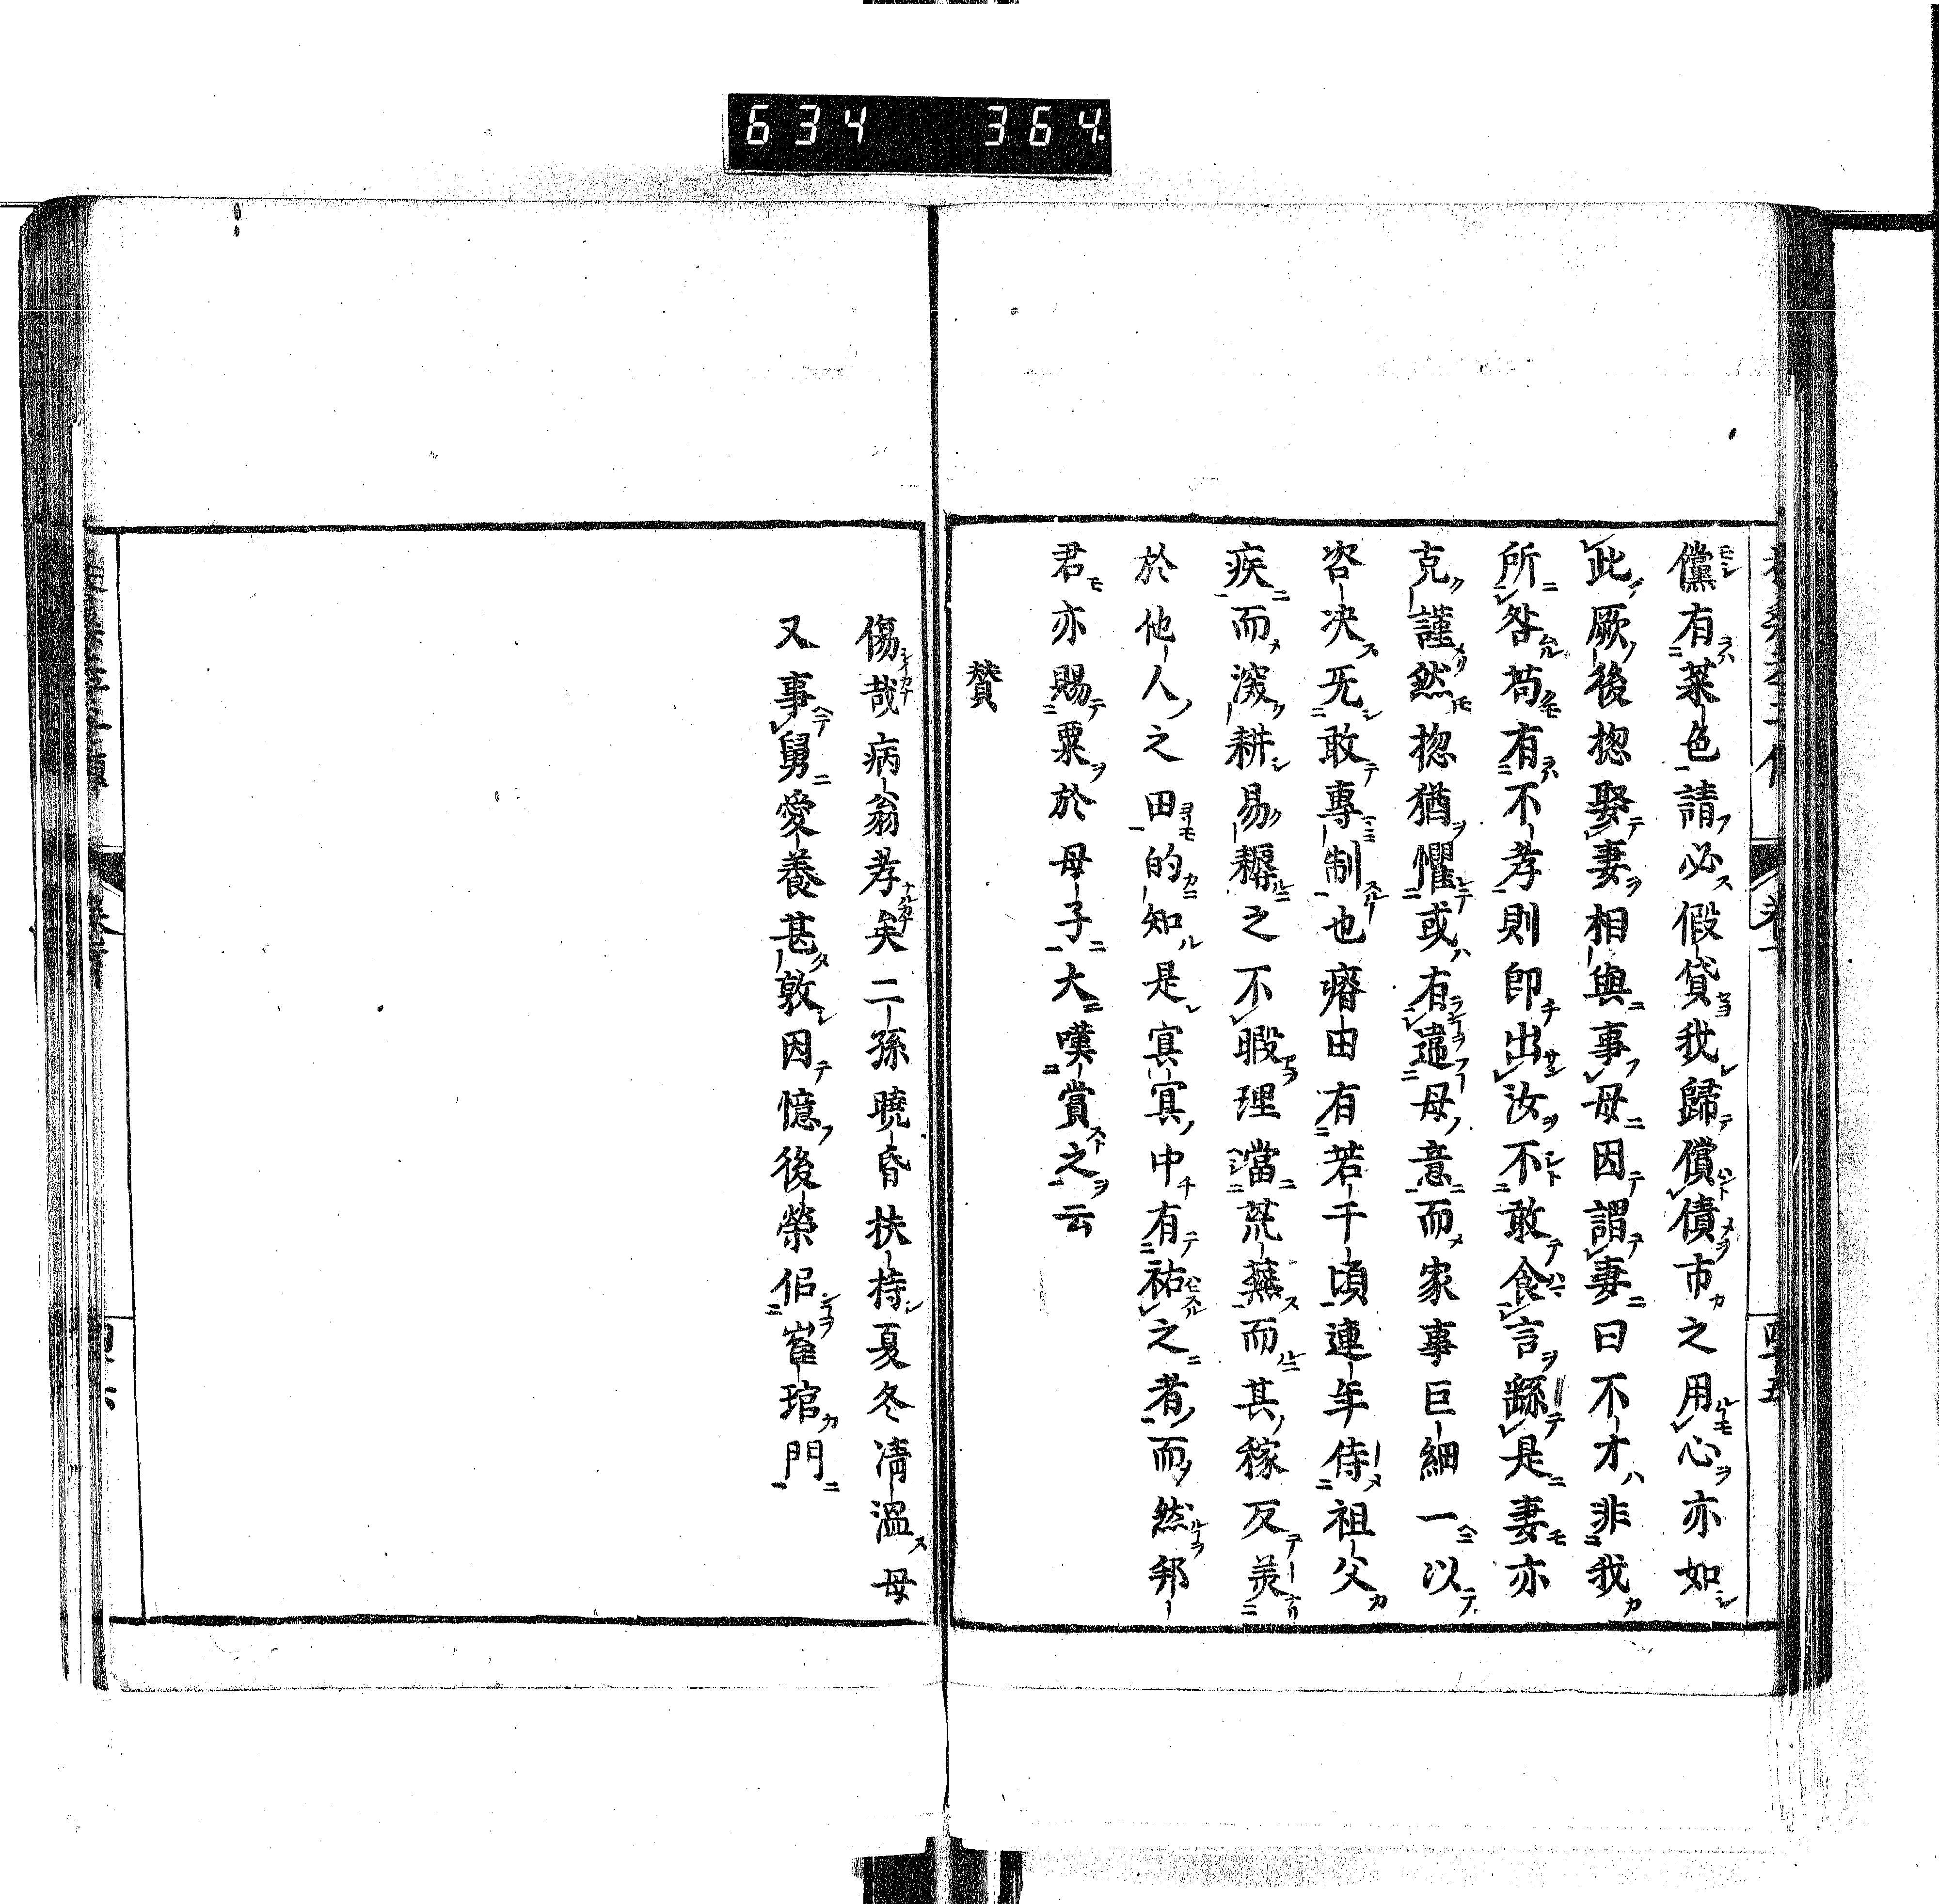 634 364
儻有菜色請必假貸我歸償債市之用心亦如
此厥後揔娶妻相與事母因謂妻曰不才非我
所咎苟有不孝則即出汝不敢食言繇是妻亦
克謹然揔猶懼或有違母意而家事巨細一以
咨决无敢專制也瘠田有若干頃連年侍祖父
疾而深耕易耨之不暇理當荒蕪而其稼反美
於他人之田的知是冥冥中有祐之者而然邦
君亦賜粟於母子大嘆賞之云
贊
傷哉病翁孝矣二孫曉昏扶持夏冬凊溫母
又事舅愛養甚敦因憶後榮侣崔琯門